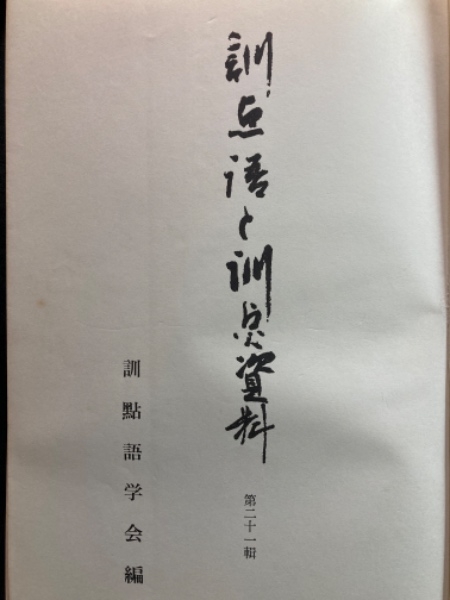 訓点语と訓点資料
第二十一輯
訓點語学会編